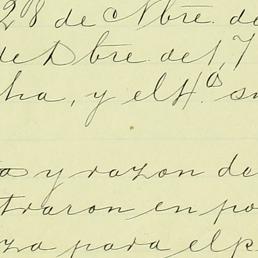 28 de Nbre. de
de Dbre. del, 7
ha, y el H.º su
a y razon de
traron en po
za para el p